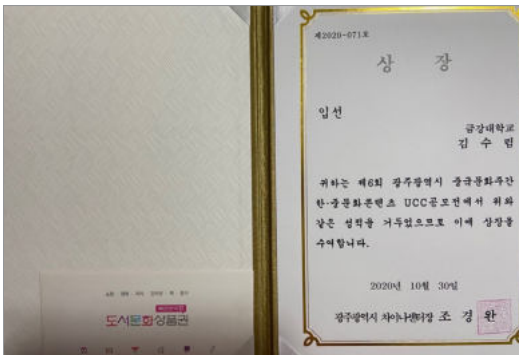 제2020-071호
상 장
입선
금강대학교
김 수 림
귀하는 제6회 광주광역시 중국문화주간
한·중문화콘텐츠 UCC공모전에서 위와
같은 성적을 거두었으므로 이에 상장을
수여합니다.
2020년 10월 30일
광주광역시 차이나센터장 조 경 완
도서문화상품권